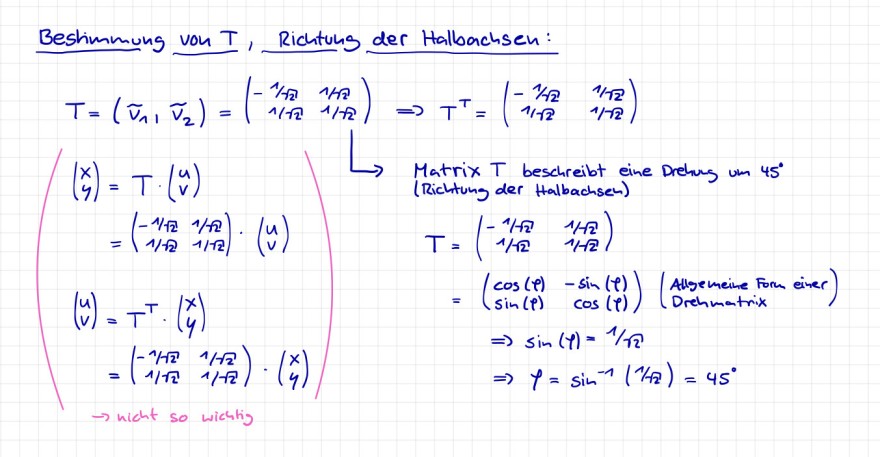 Bestimmung von T, Richtung der Halbachsen:
T = (ṽ₁, ṽ₂) = (-1/√2 1/√2; 1/√2 1/√2) => Tᵀ = (-1/√2 1/√2; 1/√2 1/√2)
(x; y) = T · (u; v)
= (-1/√2 1/√2; 1/√2 1/√2) · (u; v)
(u; v) = Tᵀ · (x; y)
= (-1/√2 1/√2; 1/√2 1/√2) · (x; y)
→ nicht so wichtig
Matrix T beschreibt eine Drehung um 45°
(Richtung der Halbachsen)
T = (-1/√2 1/√2; 1/√2 1/√2)
= (cos(φ) -sin(φ); sin(φ) cos(φ)) (Allgemeine Form einer
Drehmatrix)
=> sin(φ) = 1/√2
=> φ = sin⁻¹(1/√2) = 45°